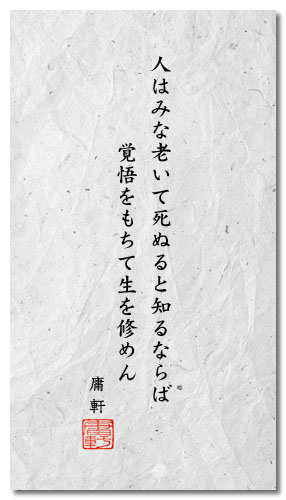 人はみな老いて死ぬると知るならば
覚悟をもちて生を修めん
庸軒